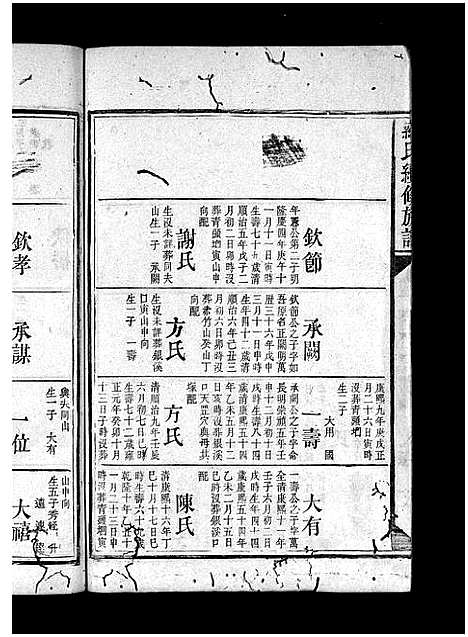 氏續修族譜
欽節
隆慶四年庚午十
一月十一日寅時
生壽七十五歲清
順治五年戊子二
月初二日卯時沒
葬青頭增寅山申
向配
謝氏
生沒未詳葬同夫
山生一子 承闕
承闕
欽節公之子字
吾原省正闕明萬
歷三十六年戊申
三月十一日申時
生壽四十二歲清
順治六年己丑三
月初六日卯時沒
葬素竹山癸山丁
向配
方氏
生沒未詳葬銀溪
口寅山申向
生一子 一壽
康熙九年庚戌正
月二十六日寅時
沒葬青頭增
生二子
大用 國
一壽
承闕公之子字命
長明崇禎五年壬
申十二月初十日
戌時生壽八十四
歲清康熙五十四
年乙未五月十二
日亥時沒葬銀溪
口天罡穴與母共
塚配
方氏
清順治九年壬辰
六月初七日巳時
生壽七十二歲雍
正元年癸卯十月
十三日子時沒葬
大有
一壽公之子字萬
全清康熙十一年
壬子六月初二日
戌時生壽四十四
歲康熙五十四年
乙未二月十五日
巳時沒葬銀溪口
配
陳氏
清康熙十六年丁
巳十月十七日巳
時生壽六十
乾隆十年
一月二十三日寅
時沒葬青頭增寅
山申向
欽孝
承謀
一位
興失同山
生一子 大有
大禧
山申向
生五子